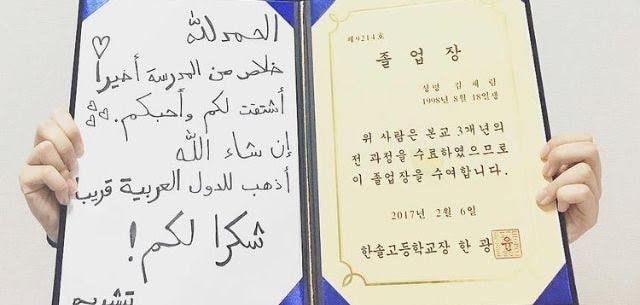 الحمد لله
خلاص من المدرسة أخيرا
أشتقت لكم وأحبكم.
إن شاء الله
أذهب للدول العربية قريبا
شكرا لكم!
제9214호
졸 업 장
성명 김 림
1998년 8월 18일생
위 사람은 본교 3개년의
전 과정을 수료하였으므로
이 졸업장을 수여합니다.
2017년 2월 6일
한솔고등학교장 한 광